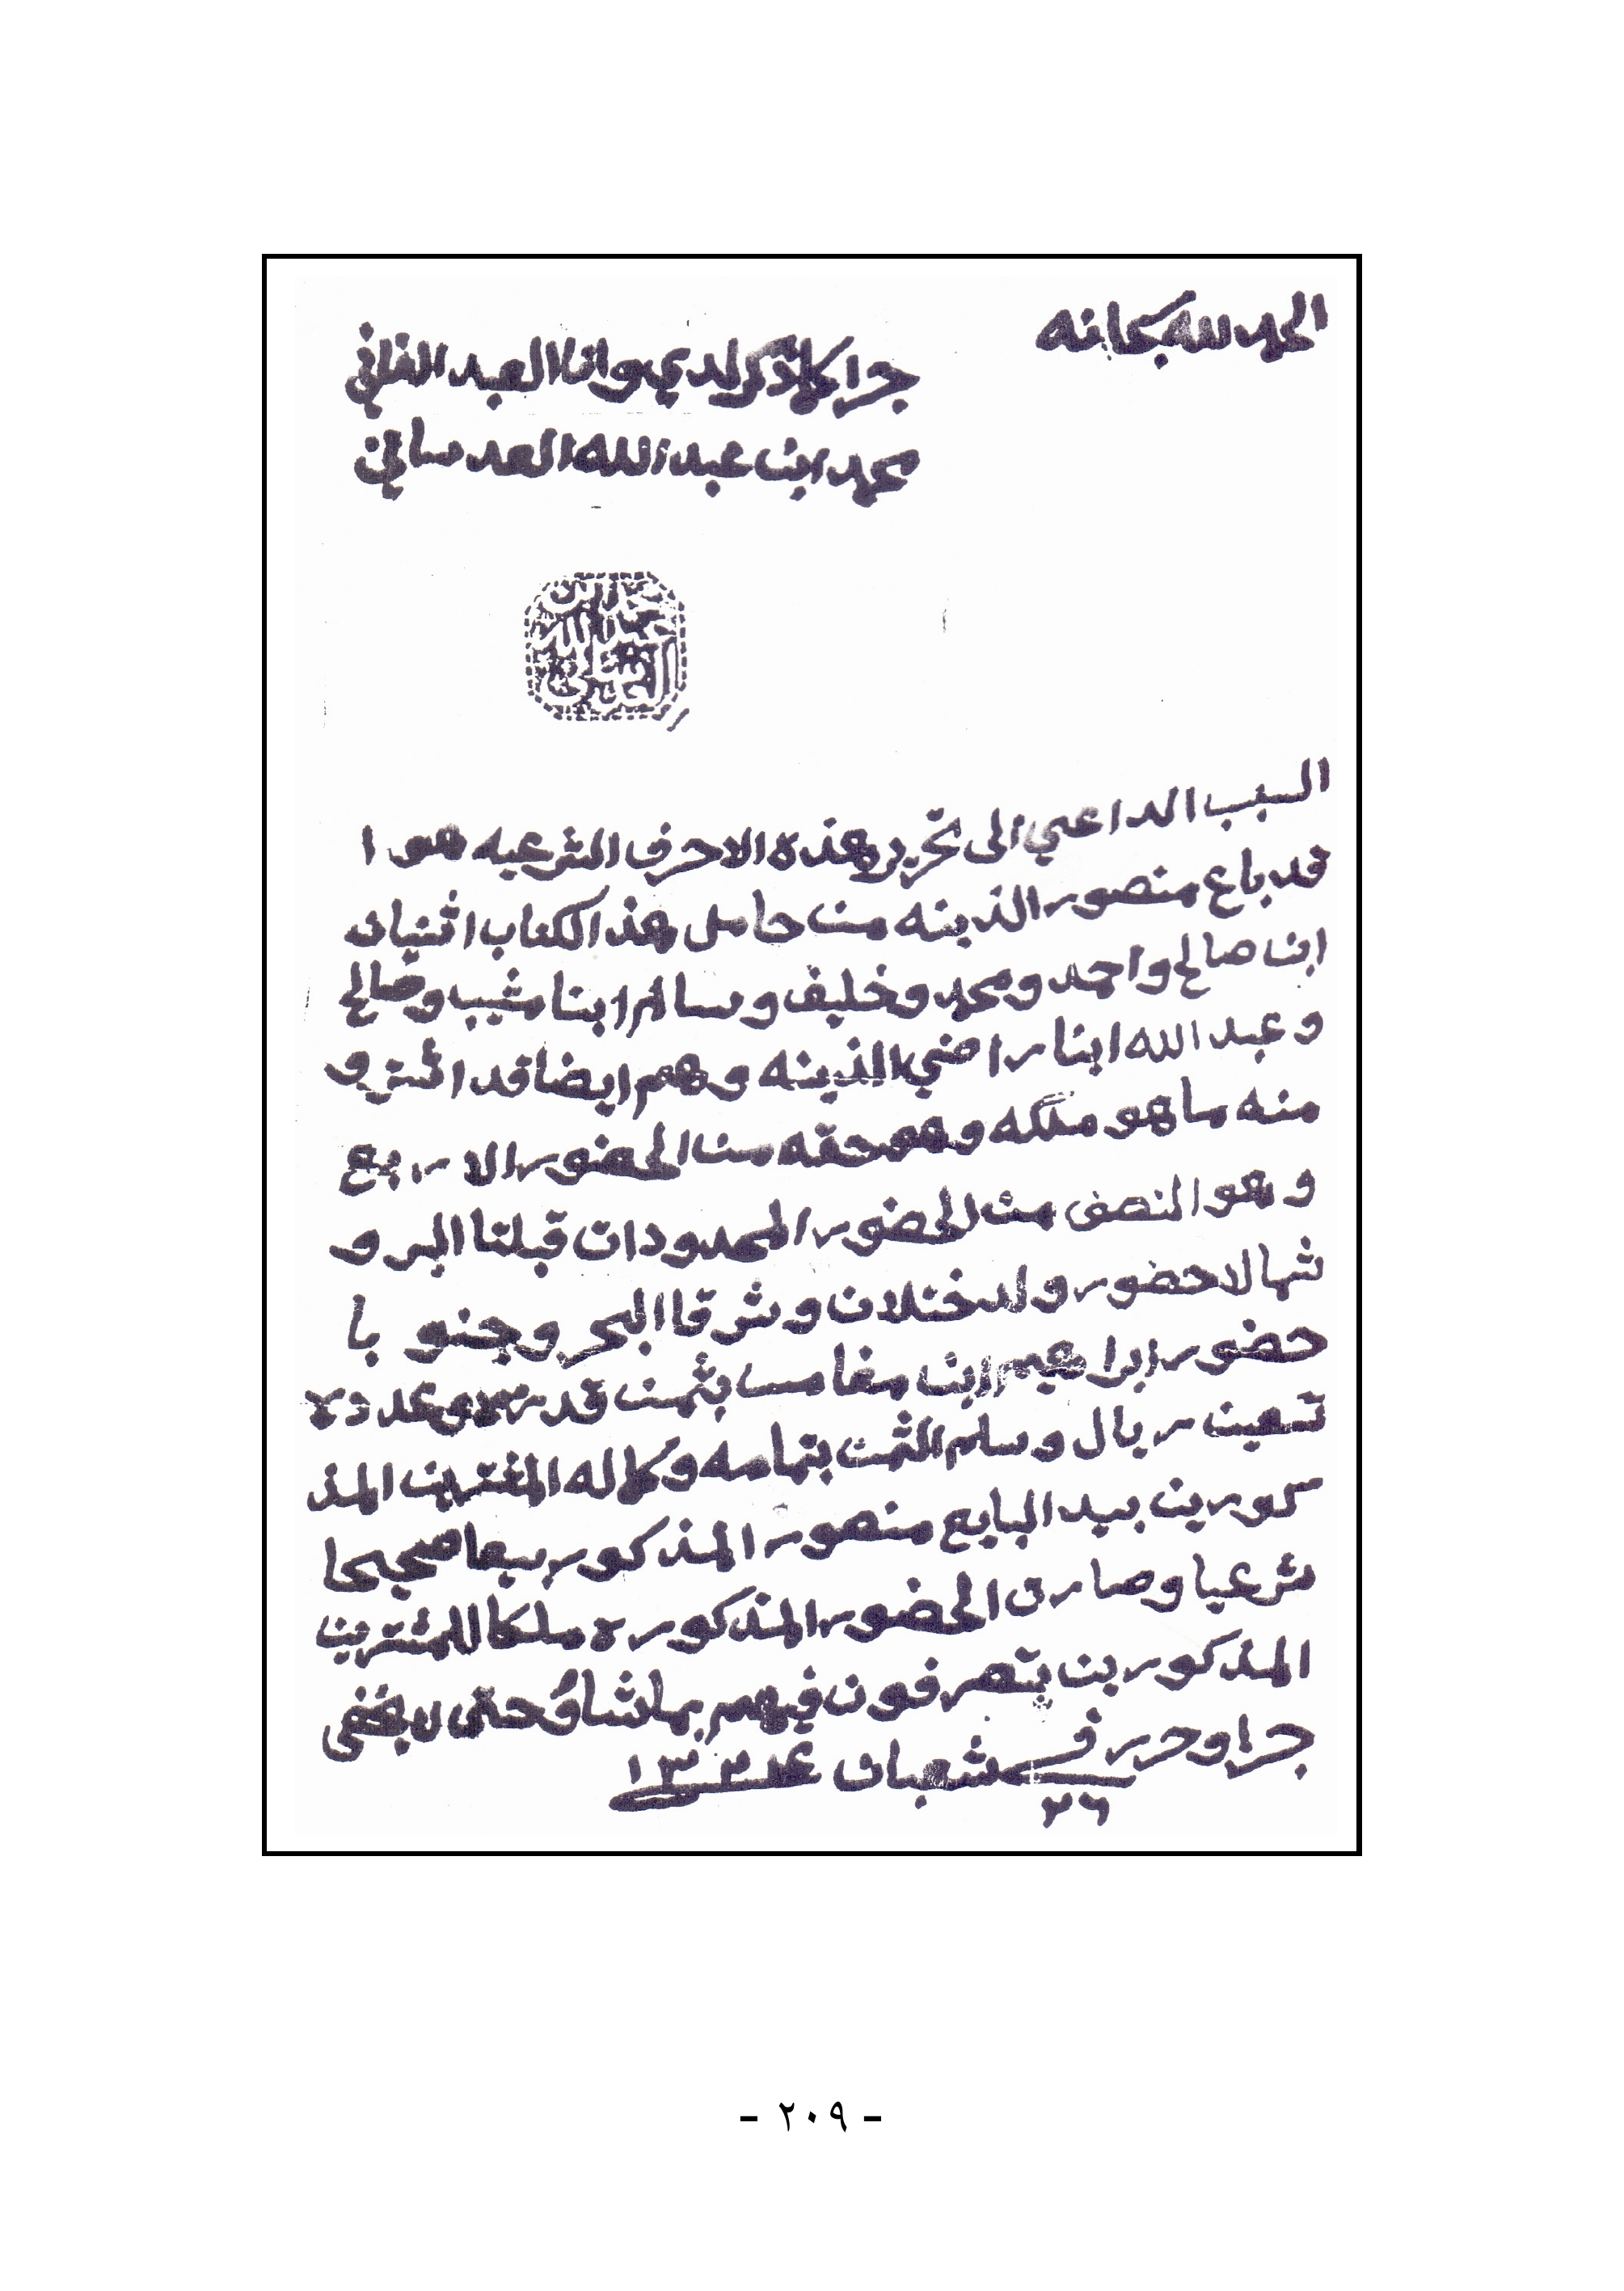 الحمد لله سبحانه
جرا كما ذكر لدي وانا العبد الفاني
محمد ابن عبد الله العدساني
السبب الداعي الى تحرير هذه الاحرف الشرعيه هو ا
قد باع منصور الذينه من حامل هذا الكتاب اثنيان
ابن صالح واحمد ومحمد وخليف وسالم ابنا شيب وصالح
وعبد الله ابنا راضي الذينه وهم ايضا قد اشترو
منه ما هو ملكه وهو حقه من الحضور الاربع
وهو النصف من الحضور المحدودات قبلتا البر و
شمالا حضور ولد ختلان وشرقا البحر وجنو با
حضور ابراهيم ابن مغامس بثمن قدره وعدده
تسعين ريال وسلم الثمن بتمامه وكماله المشترين المذ
كورين بيد البايع منصور المذكور بيعا صحيحا
شرعيا وصارت الحضور المذكوره ملكا للمشترين
المذكورين يتصرفون فيهم بما شاؤ حتى لا يخفى
جرا وحرر في ٢٦ شعبان ١٣٣٤
- ٢٠٩ -